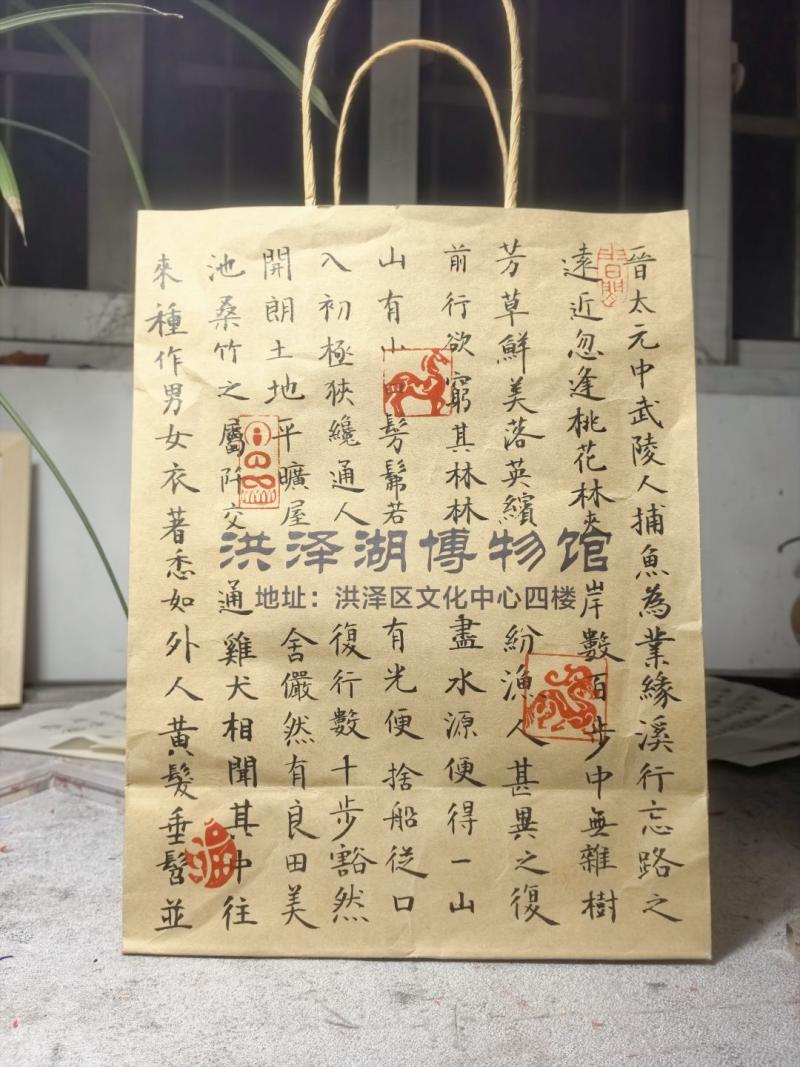 晉太元中武陵人捕魚為業緣溪行忘路之
遠近忽逢桃花林夾岸數百步中無雜樹
芳草鮮美落英繽紛漁人甚異之復
前行欲窮其林林盡水源便得一山
山有小口髣髴若有光便捨船從口
入初極狹纔通人復行數十步豁然
開朗土地平曠屋舍儼然有良田美
池桑竹之屬阡交通雞犬相聞其中往
來種作男女衣著悉如外人黃髮垂髫並
洪泽湖博物馆
地址：洪泽区文化中心四楼